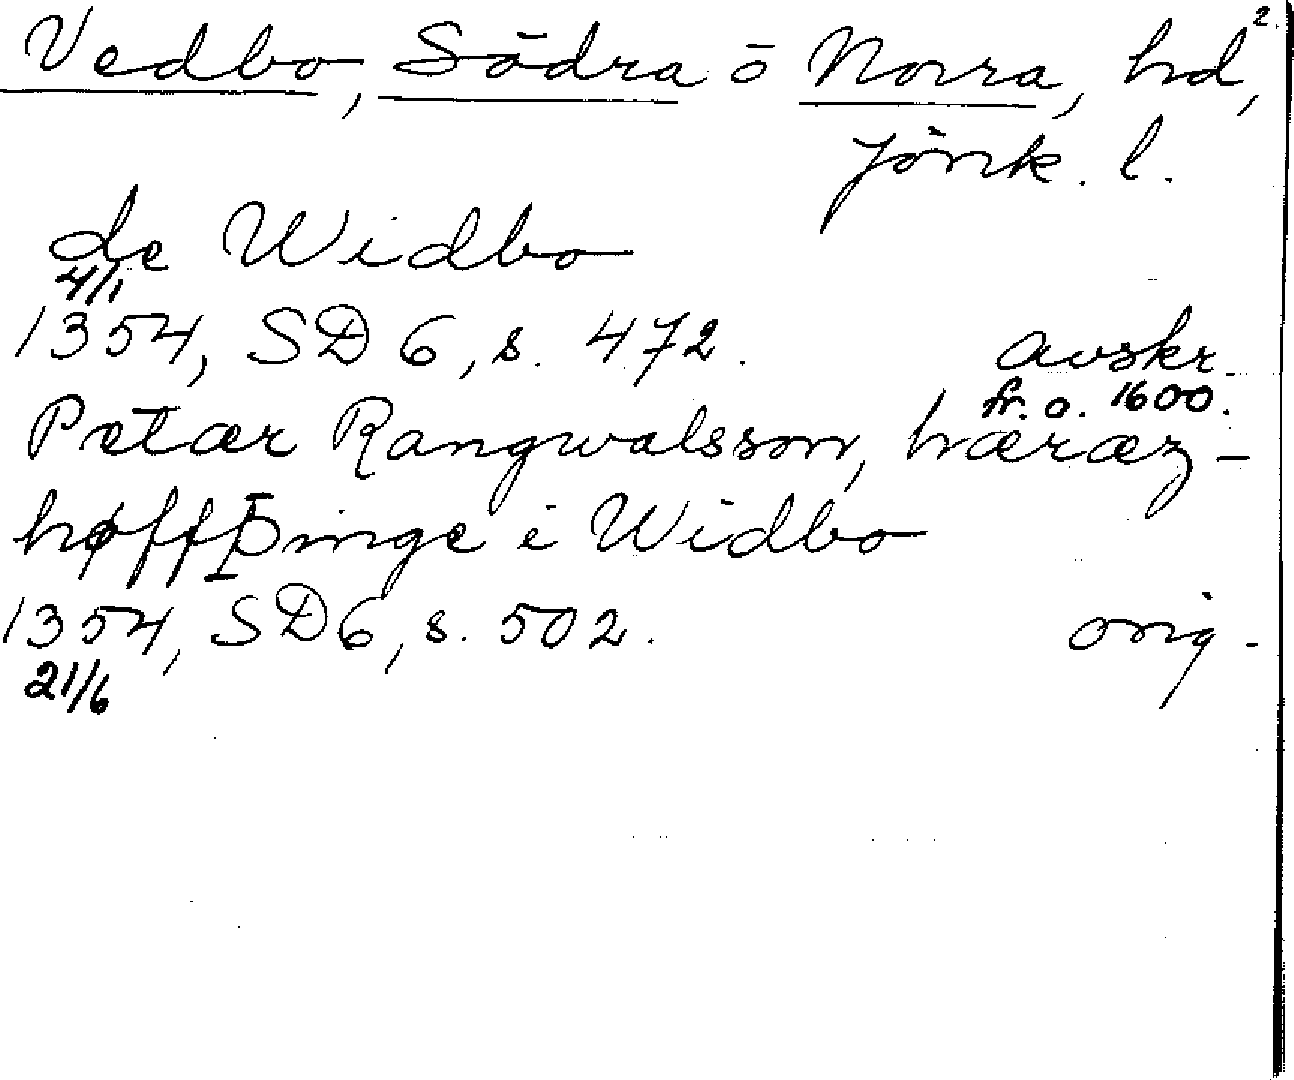 2.
Vedbo, Södra o Norra, hd,
Jönk. l.
de Widbo
4/1
1354, SD 6, s. 472. avskr.
fr. o. 1600.
Petær Rangwalsson, hæræz-
høffþinge i Widbo
1354, SD 6, s. 502. orig.
21/6